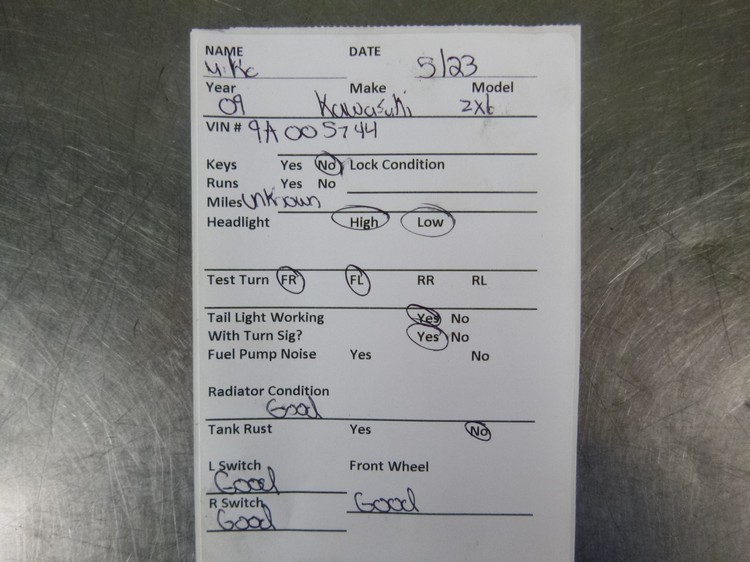 NAME DATE
Mike 5/23
Year Make Model
09 Kawasaki ZX6
VIN # 9A005744
Keys Yes No Lock Condition
Runs Yes No
Miles Unknown
Headlight High Low
Test Turn FR FL RR RL
Tail Light Working Yes No
With Turn Sig? Yes No
Fuel Pump Noise Yes No
Radiator Condition
Good
Tank Rust Yes No
L Switch Front Wheel
Good
R Switch Good
Good